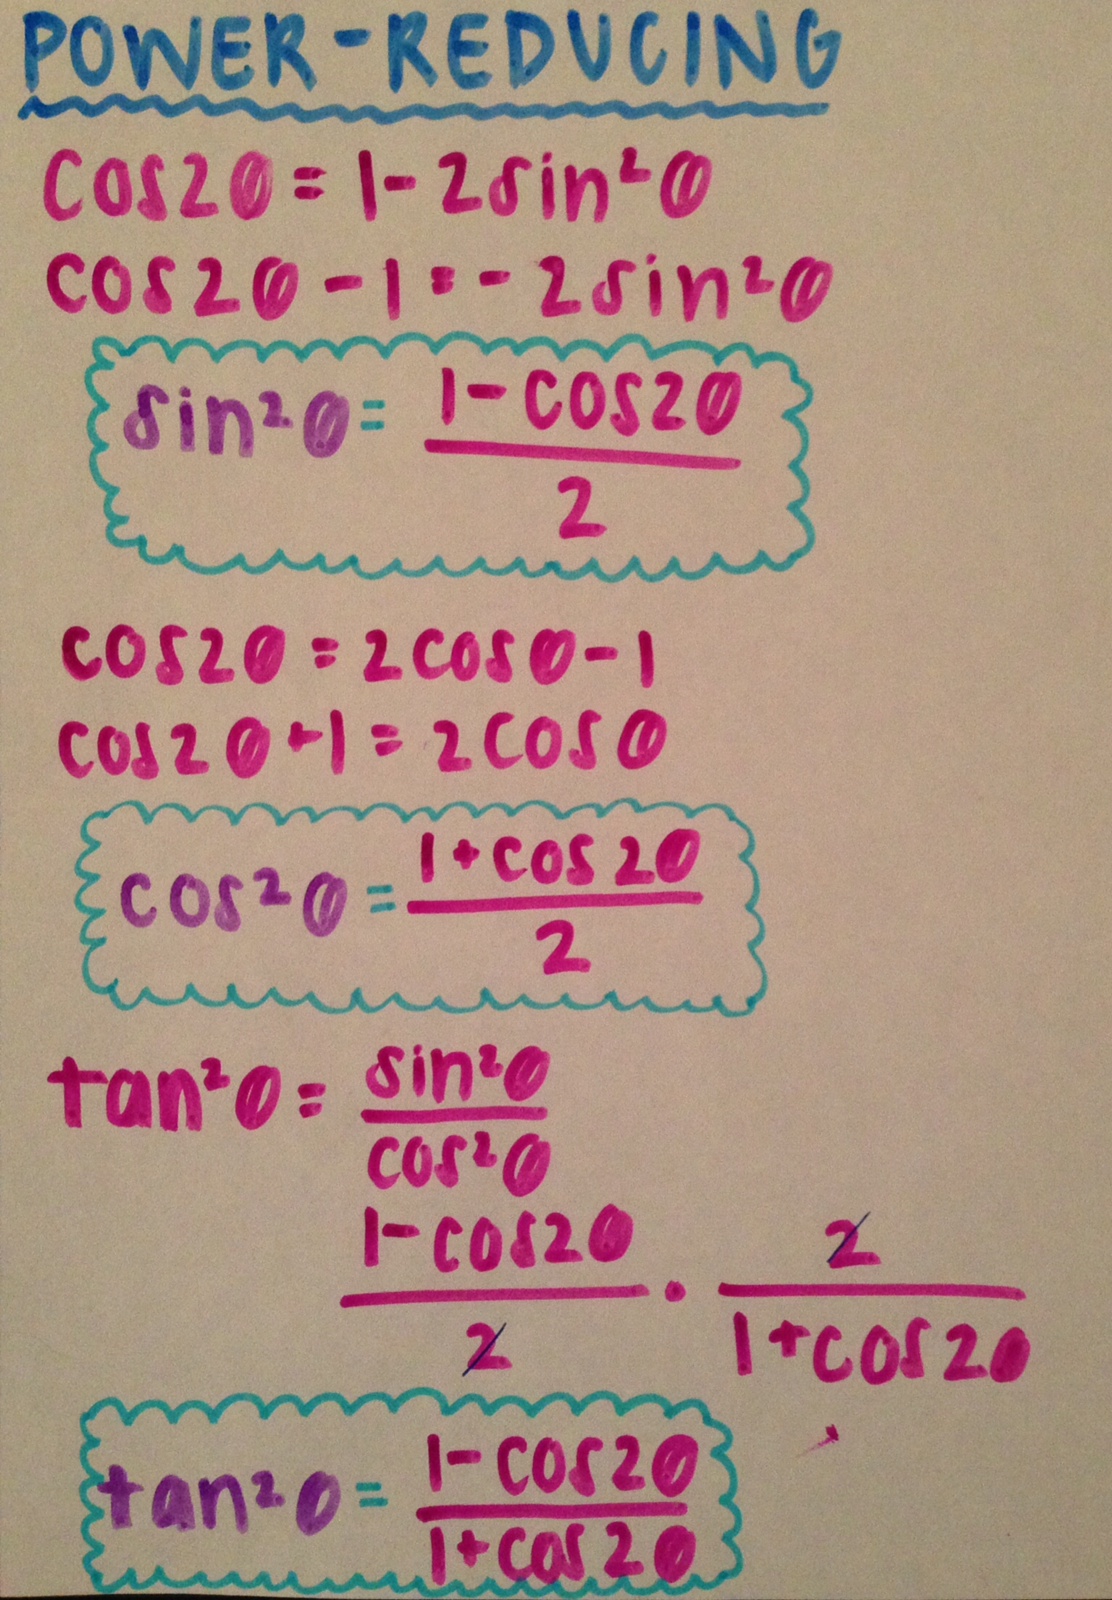 POWER-REDUCING
cos2θ = 1 - 2sin²θ
cos2θ - 1 = - 2sin²θ
sin²θ = (1 - cos2θ)/2
cos2θ = 2cosθ - 1
cos2θ + 1 = 2cosθ
cos²θ = (1 + cos2θ)/2
tan²θ = sin²θ/cos²θ
(1 - cos2θ)/2 · 2/(1 + cos2θ)
tan²θ = (1 - cos2θ)/(1 + cos2θ)